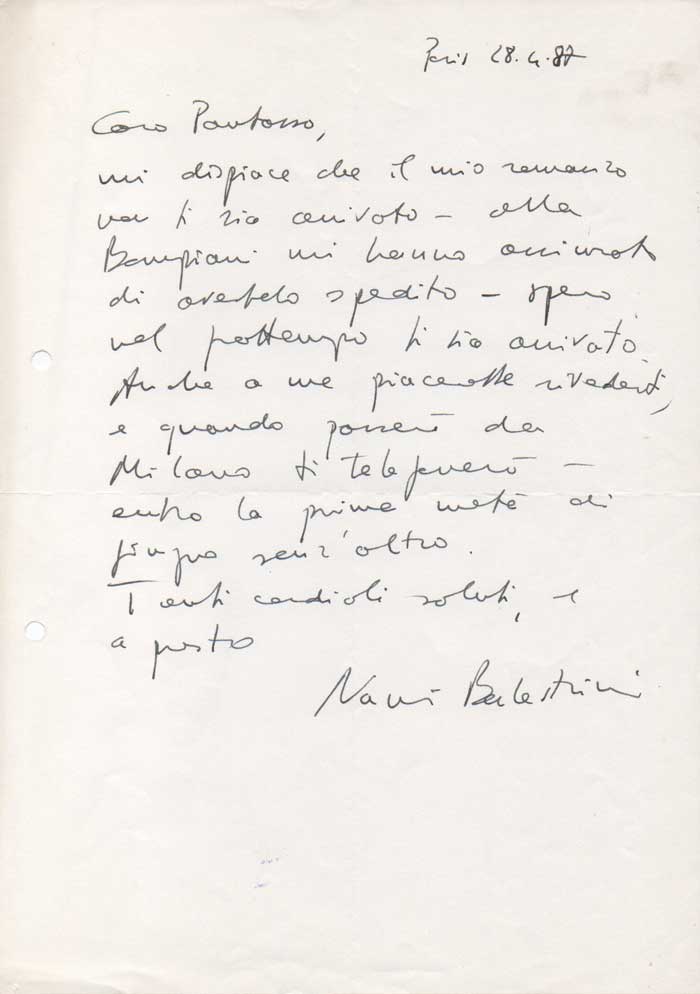 Paris 28.4.87
Caro Pautasso,
mi dispiace che il mio romanzo
non ti sia arrivato – alla
Bompiani mi hanno assicurato
di avertelo spedito – spero
nel frattempo ti sia arrivato.
Anche a me piacerebbe rivederti,
e quando passerò da
Milano ti telefonerò –
entro la prima metà di
giugno senz'altro.
Tanti cordiali saluti, e
a presto
Nanni Balestrini